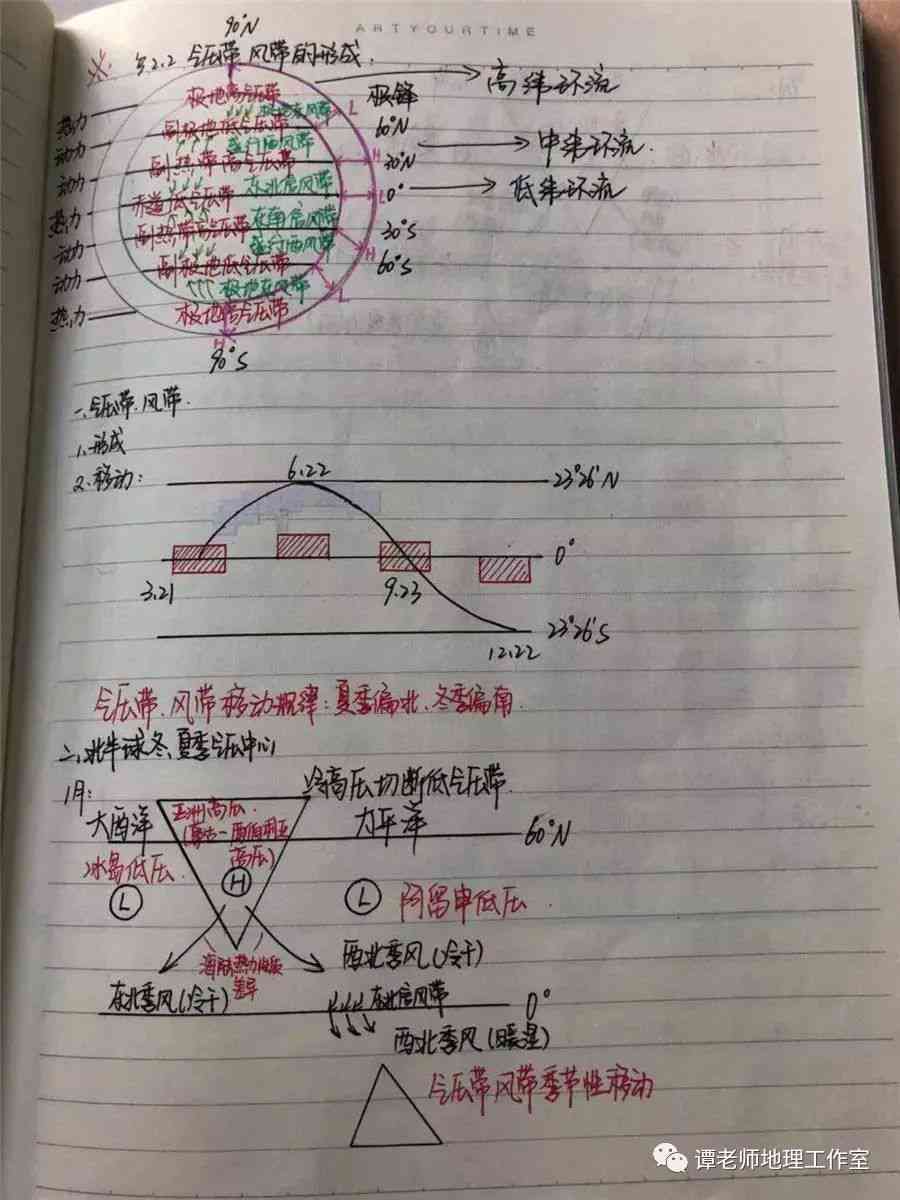 ARTYOURTIME
90°N
※ 3.2.2 气压带 风带的形成.
极地高气压带 极锋 高纬环流
热力 极地东风带 L
副极地低气压带 60°N
动力 盛行西风带 中纬环流.
副热带高气压带 H 30°N
动力 东北信风带
赤道低气压带 L 0° 低纬环流
热力 东南信风带
副热带高气压带 30°S
动力 盛行西风带 H
副极地低气压带 60°S
动力 极地东风带 L
热力 极地高气压带
H
90°S
一、气压带、风带.
1、形成
2、移动:
6.22 23°26′N
0°
3.21 9.23
23°26′S
12.22
气压带、风带移动规律:夏季偏北、冬季偏南.
二、北半球冬、夏季气压中心
1月: 冷高压切断低气压带.
大西洋 亚洲高压. 太平洋
(蒙古—西伯利亚 60°N
高压)
冰岛低压.
L H L 阿留申低压.
西北季风(冷干)
海陆热力性质
差异
东北季风(冷干) 东北信风带 0°
西北季风(暖湿)
气压带风带季节性移动
谭老师地理工作室